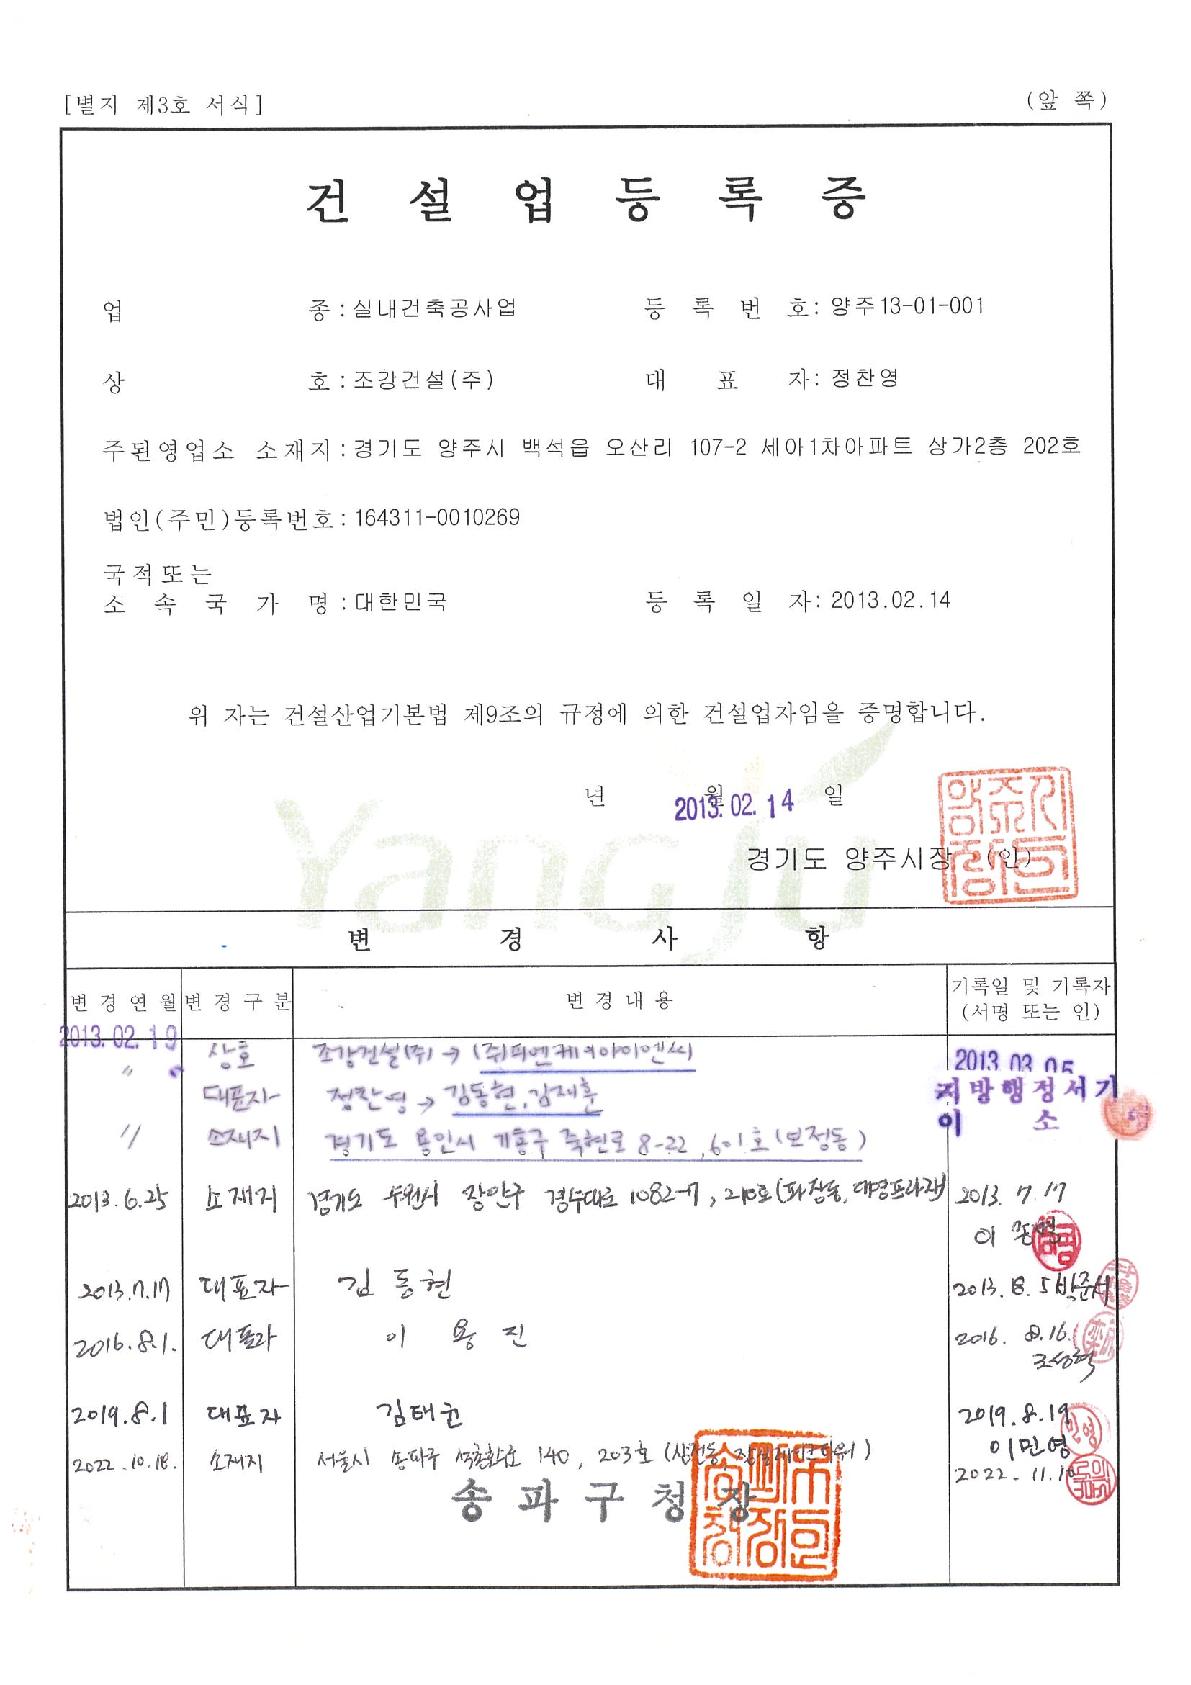 [별지 제3호 서식]
(앞 쪽)
건 설 업 등 록 증
업 종 : 실내건축공사업 등 록 번 호 : 양주13-01-001
상 호 : 조강건설(주) 대 표 자 : 정찬영
주된영업소 소재지 : 경기도 양주시 백석읍 오산리 107-2 세아1차아파트 상가2층 202호
법인(주민)등록번호 : 164311-0010269
국적또는
소 속 국 가 명 : 대한민국 등 록 일 자 : 2013.02.14
위 자는 건설산업기본법 제9조의 규정에 의한 건설업자임을 증명합니다.
년 월 일
2013.02.14
경기도 양주시장 (인)
Yangju
변 경 사 항
변 경 연 월 변 경 구 분 변 경 내 용 기록일 및 기록자
(서명 또는 인)
2013.02.19 상호 조강건설(주) → (주)피엔케이아이엔씨 2013 03 05
" 대표자 정찬영 → 김동현, 김재훈 지방행정서기
이 소
" 소재지 경기도 용인시 기흥구 죽현로 8-22, 601호 (보정동)
2013.6.25 소재지 경기도 수원시 장안구 경수대로 1082-7, 210호 (파장동, 대명프라자) 2013. 7. 17
이
2013.7.17 대표자 김동현 2013. 8. 5 박준서
2016.8.1. 대표자 이 용 진 2016. 8.16.
2019.8.1 대표자 김태균 2019.8.19
이민영
2022.10.18. 소재지 서울시 송파구 석촌호수로 140, 203호 2022. 11.10
송 파 구 청 장